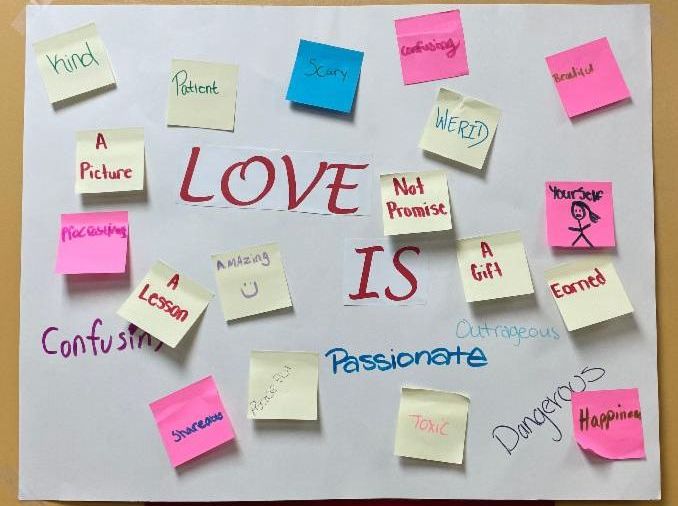 Kind
Patient
Scary
Confusing
Beautiful
WERID
A
Picture
LOVE
Not
Promise
Yourself
IS
A
Gift
Earned
AMAzing
A
Lesson
Confusing
Outrageous
Passionate
Dangerous
Toxic
Happiness